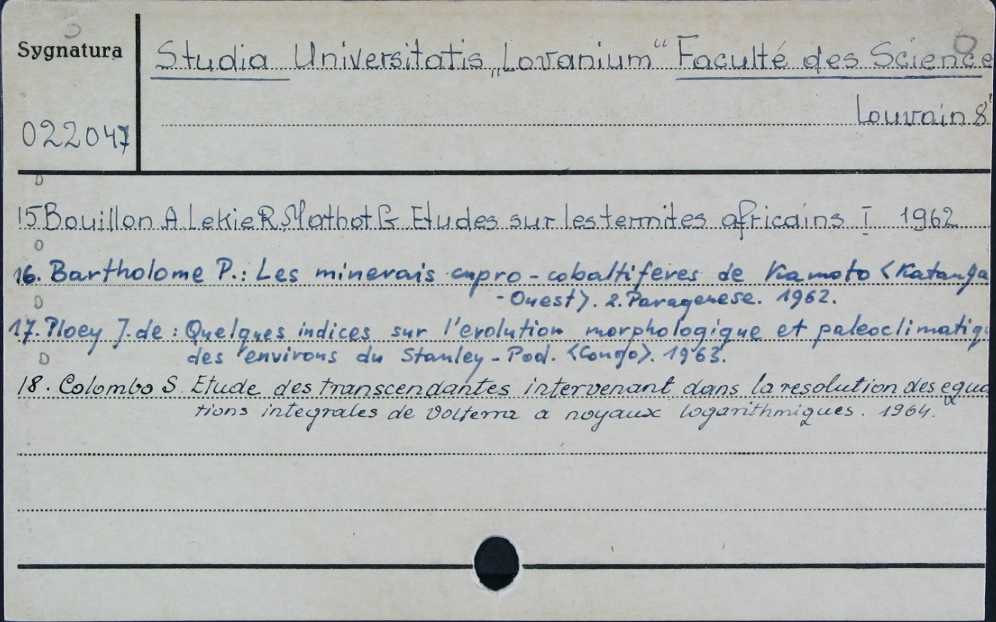 Sygnatura
Studia Universitatis „Lovanium“ Faculté des Science
Louvain 8°
022047
15 Bouillon A. Lekie R. Mathot G. Etudes sur les termites africains I 1962
16. Bartholome P.: Les minerais cupro-cobaltiferes de Kamoto <Katanga
-Ouest>. 2. Paragenese. 1962.
17. Ploey J. de: Quelques indices sur l'evolution morphologique et paleoclimatiq
des environs du Stanley-Pool. <Congo>. 1963.
18. Colombo S. Etude des transcendantes intervenant dans la resolution des equa
tions integrales de Volterra a noyaux logarithmiques. 1964.